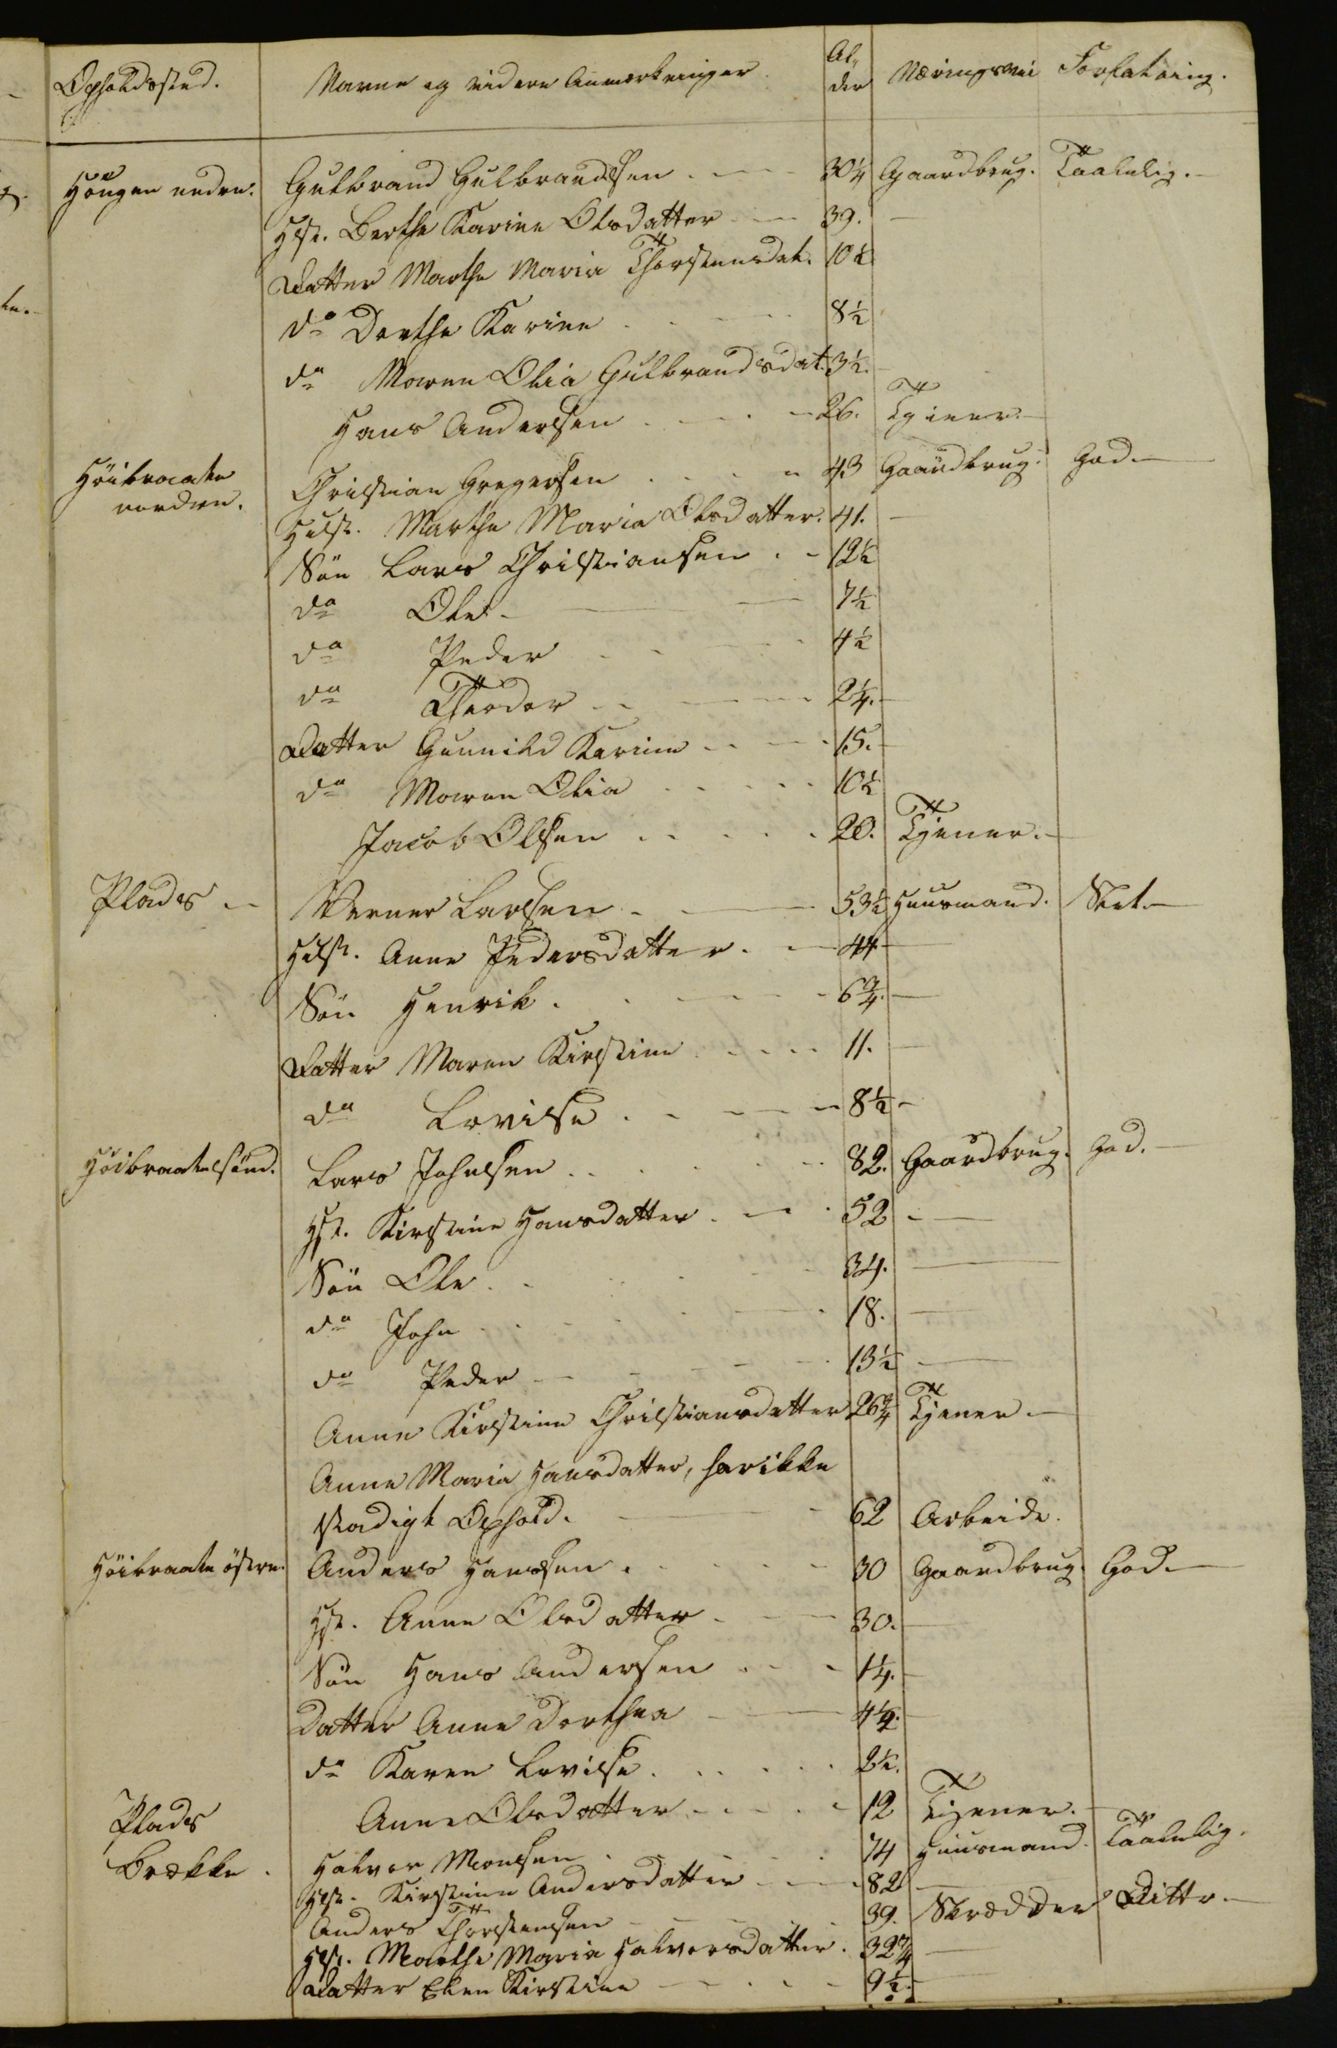 Opholdssted. Navne og videre Anmærkninger Al„der Næringsvei Forfatning.
Hougen nedre. Gulbrand Gulbrandsen 30¼ Gaardbrug. Taalelig.
Hst. Berthe Karine Olsdatter 39.
Datter Marthe Maria Thorstensdat. 10½
do Dorthe Karine 8½
do Maren Olia Gulbrandsdat. 3½.
Hans Andersen 26. Tjener
Höibraate nordre. Christian Gregersen 43 Gaardbrug. God
Hust. Marthe Maria Olsdatter. 41.
Sön Lars Christiansen 12½
do Ole 7½
do Peder 4½
do Theodor 2¼.
Datter Gunnild Karine 15.
do Maren Olia 10½
Jacob Olsen 20. Tjener.
Plads Verner Larsen 53½ Huusmand. Slet
Hst. Anne Pedersdatter 44
Sön Henrik 6¾.
Datter Maren Kirstine 11.
do Lovise 8½
Höibraate sönd. Lars Johnsen 82. Gaardbrug. God.
Hst. Kirstine Hansdatter 52
Sön Ole 34.
do John 18.
do Peder 13½
Anne Kirstine Christiansdatter 26¾ Tjener
Anne Maria Hansdatter, har ikke
stadigt Ophold. 62 Arbeide.
Höibraate östre. Anders Hansen 30 Gaardbrug. God
Hst. Anne Olsdatter 30.
Sön Hans Andersen 1¼.
Datter Anne Dorthea 4½.
do Karen Lovise 2½.
Anne Olsdatter 12 Tjener.
Plads Brække. Halvor Monsen 74 Huusmand. Taalelig.
Hst. Kirstine Andersdatter 82
Anders Thorstensen 39. Skrædder Ditto
Hst. Marthe Maria Halvorsdatter. 32¾
Datter Elen Kirstine 9½.